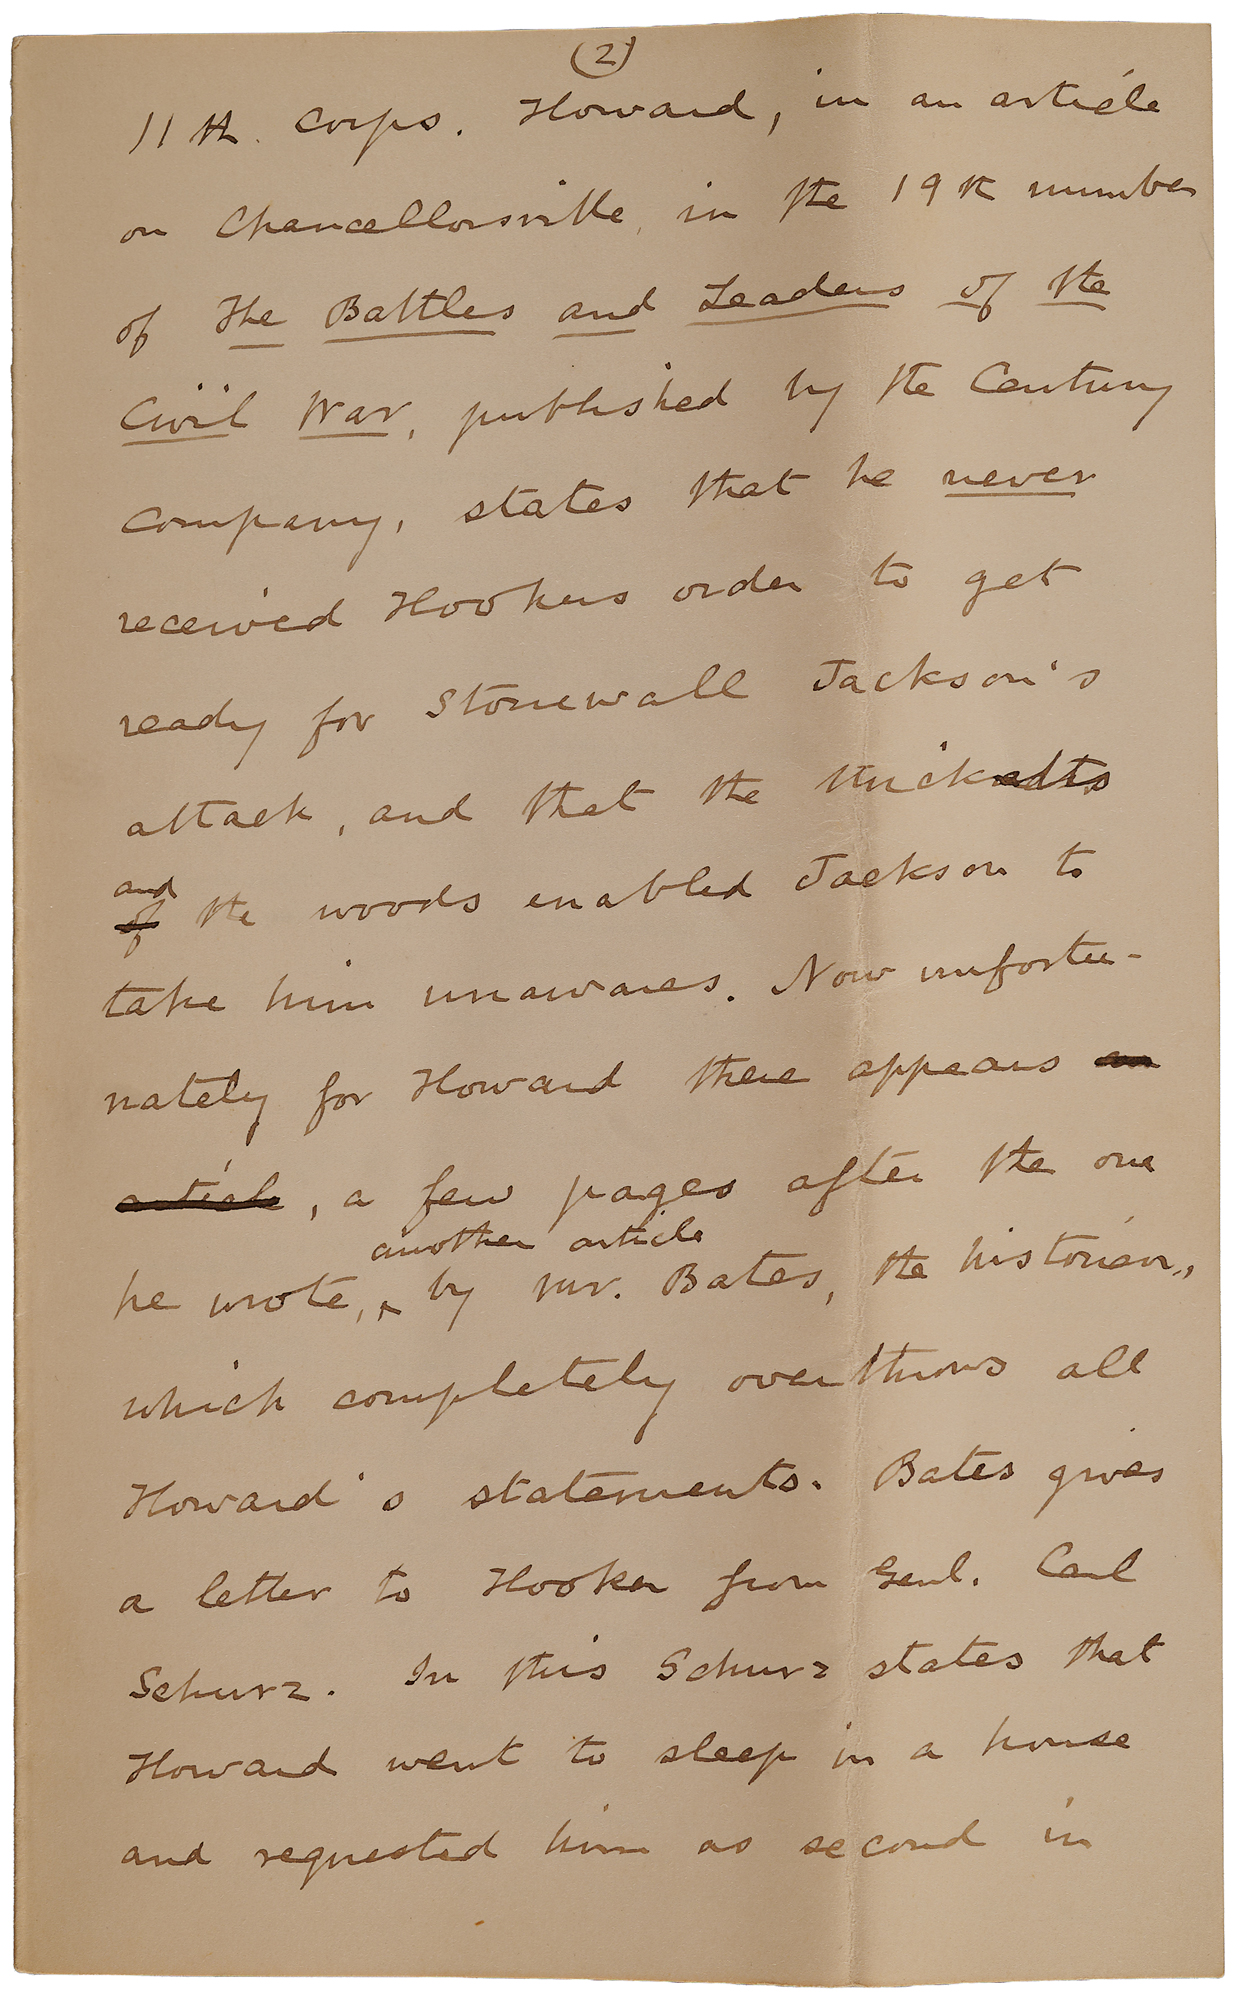 (2)
11th. Corps. Howard, in an article
on Chancellorsville, in the 19th number
of The Battles and Leaders of the
Civil War, published by the Century
Company, states that he never
received Hookers order to get
ready for Stonewall Jackson's
attack, and that the thickets
and
of the woods enabled Jackson to
take him unawares. Now unfortu-
nately for Howard there appears an
article, a few pages after the one
another article
he wrote, ^ by Mr. Bates, the historian,
which completely overthrows all
Howard's statements. Bates gives
a letter to Hooker from Genl. Carl
Schurz. In this Schurz states that
Howard went to sleep in a house
and requested him as second in